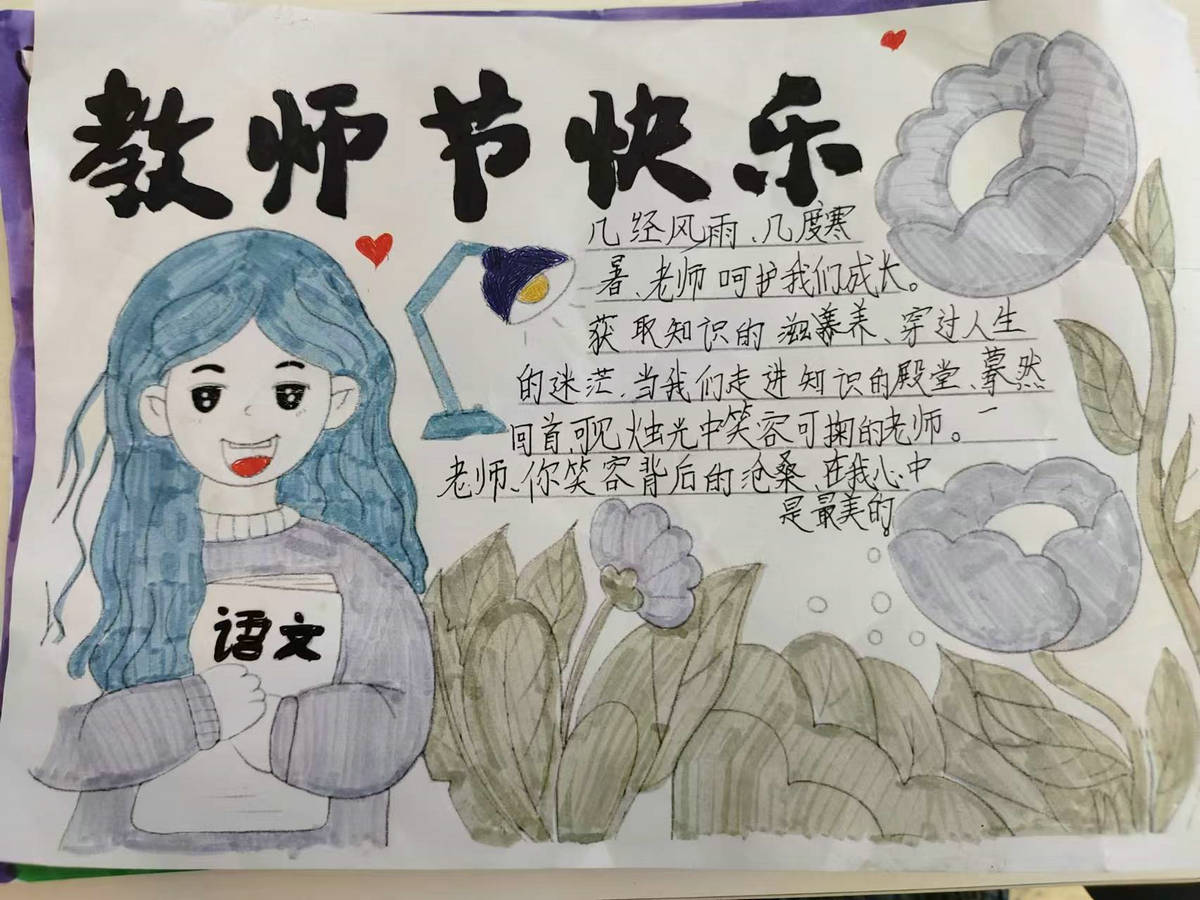 教师节快乐
几经风雨、几度寒
暑、老师呵护我们成长。
获取知识的滋养、穿过人生
的迷茫、当我们走进知识的殿堂、蓦然
回首,可见烛光中笑容可掬的老师。
老师、你笑容背后的沧桑、在我心中
是最美的。
语文